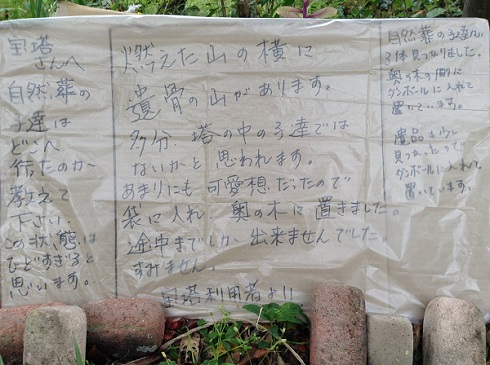 宝塔
さんへ
自然葬の
子達は
どこへ
行たのか
教えて
下さい。
この状態は
ひどすぎると
思います。
燃えた山の横に
遺骨の山があります。
多分、塔の中の子達では
ないかと思われます。
あまりにも可愛想だったので
袋に入れ 奥の木に置きました。
途中までしか出来ませんでした
すみません。
宝塔利用者より。
自然葬の子達が
3体見つかりました。
奥の木の間に
ダンボールに入れて
置いています。
遺品も少し
見つかったので
ダンボールに入れて
置いています。